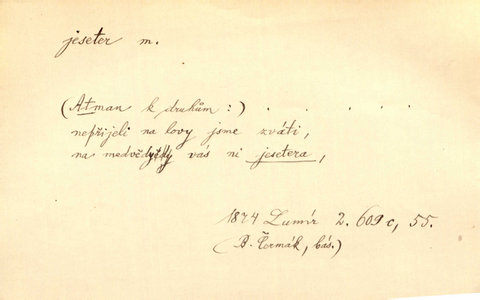 jeseter m.
(Atman k druhům:) . . . . .
nepřijeli na lovy jsme zváti,
na medvědy vás ni jesetera,
1874 Lumír 2. 609 c, 55.
(B. Čermák, bás.)